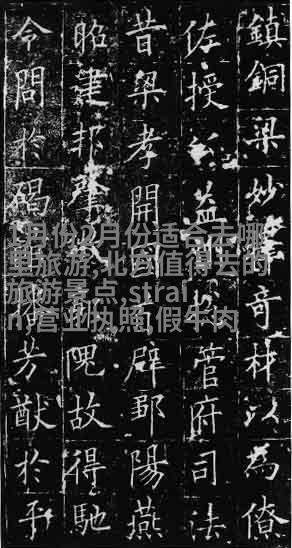 鎮銅梁妙奇材以為僚
佐授益管府司法
昔梁孝開國首辟鄒陽燕
昭建邦肇隗故得馳
令問於碣播芳猷於平
1月份2月份适合去哪
里旅游,北京值得去的
旅游景点,strai
n,营业执照,假牛肉